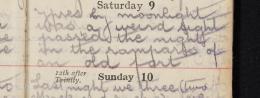 Saturday 9
by moonlight
was a weird sight
passed the night
in the ramparts of
an old fort
12th after
Trinity.
Sunday 10
Last night we three (two